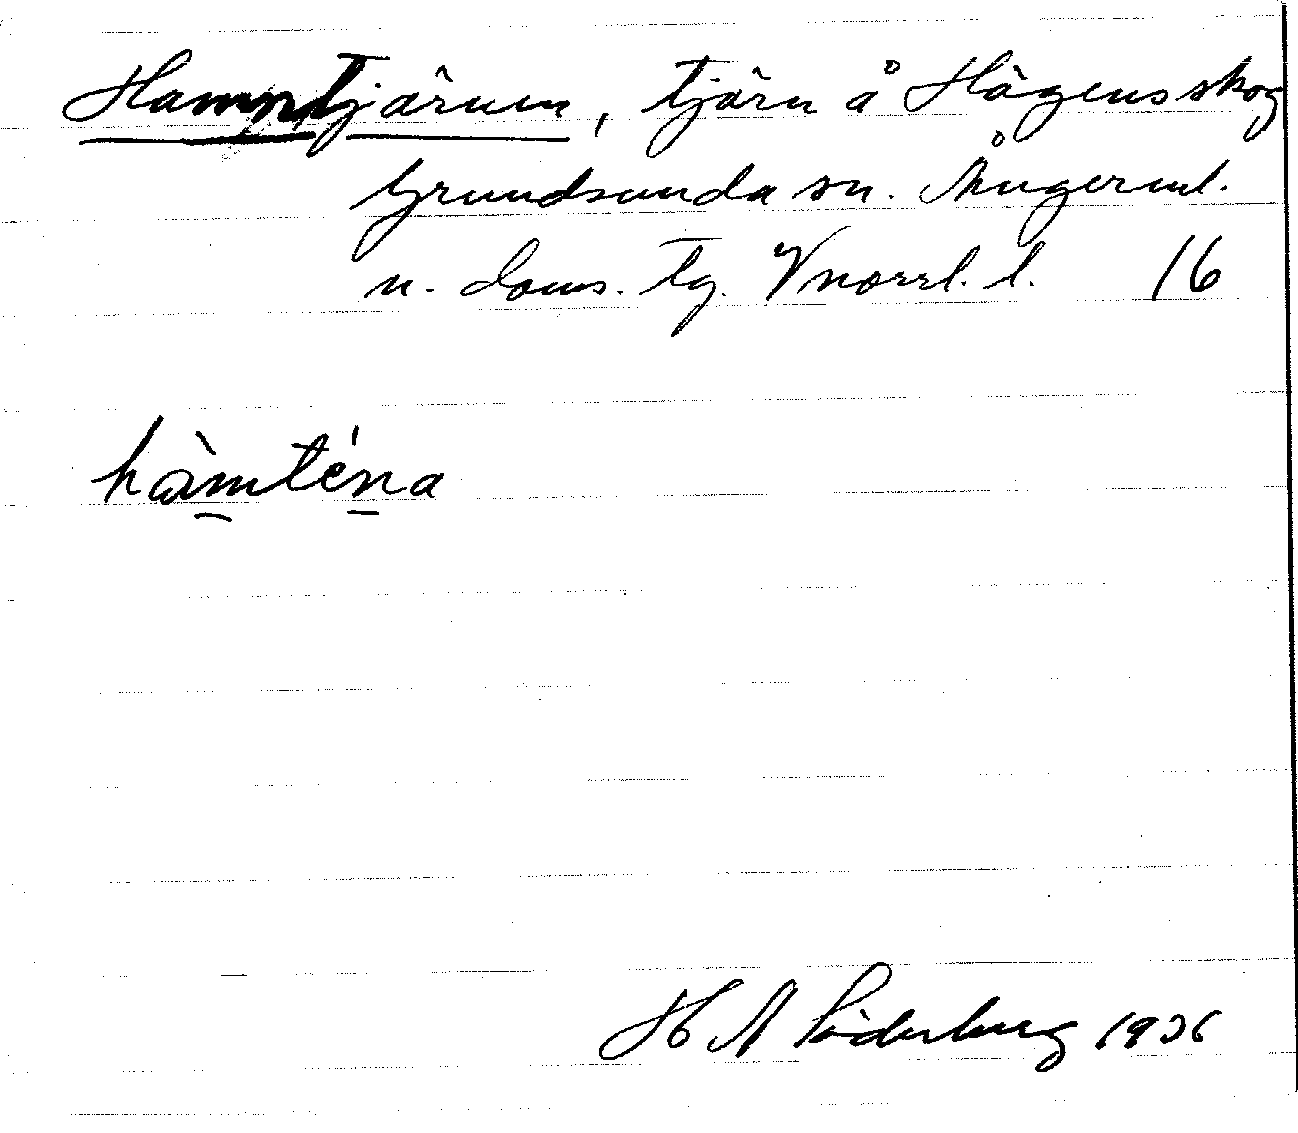 Hamntjärnen, tjärn å Hägens skog
Grundsunda sn. Ångerml.
n. doms. tg. Vnorrl. l. 16
hàmténa
H A Söderberg 1936